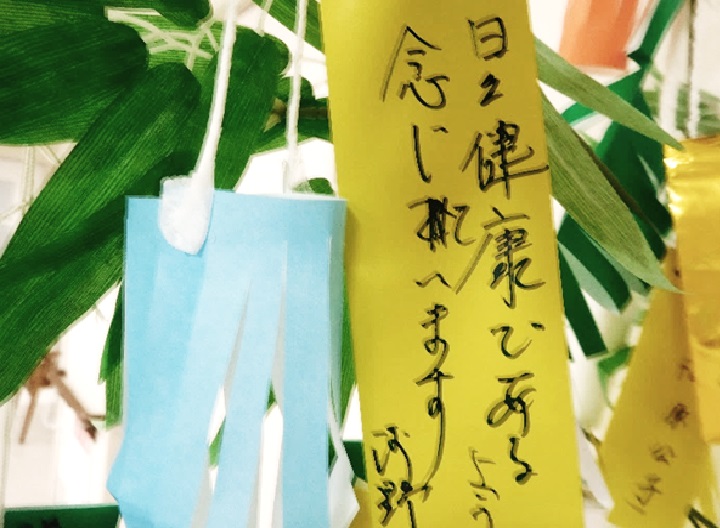 日々健康であるよう
念じ へます
河野